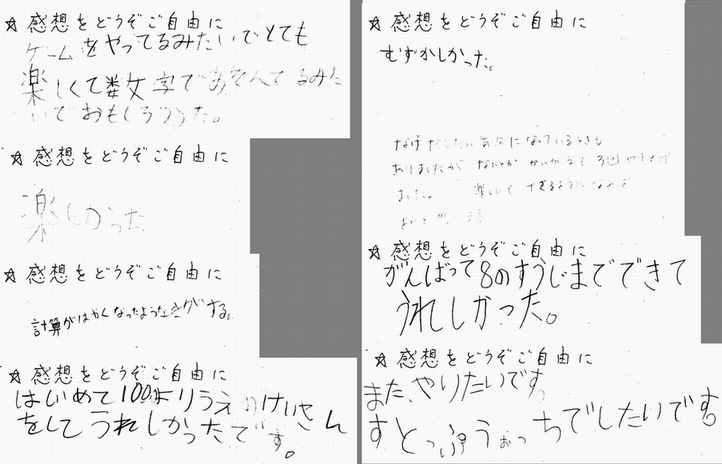 ☆ 感想をどうぞご自由に
ゲームをやってるみたいでとても
楽しくて数字であそんでるみた
いでおもしろかった。
☆ 感想をどうぞご自由に
楽しかった
☆ 感想をどうぞご自由に
計算がはやくなったような気がする。
☆ 感想をどうぞご自由に
はじめて100よりうえのけいさん
をしてうれしかったです。
☆ 感想をどうぞご自由に
むずかしかった。
なげだしたい
ありましたが なんとか 3回やりとげ
ました。 楽しんで できるようになれば
☆ 感想をどうぞご自由に
がんばって8のすうじまでできて
うれしかった。
☆ 感想をどうぞご自由に
また、やりたいです。
すとっぷうぉっちでしたいです。